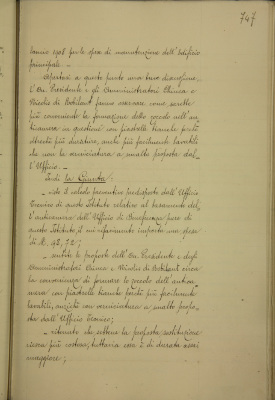 747
l'anno 1908 per le spese di manutenzione dell'Edificio
principale. -
Apertasi a questo punto una breve discussione,
l'On. Presidente e gli Amministratori Chiesa e
Nicolis di Robilant fanno osservare come sarebbe
più conveniente la formazione dello zoccolo nell'an-
ticamera in questione con piastrelle bianche perchè
altresì più duratura, anche più facilmente lavabili
che non la verniciatura a smalto proposta dal-
l'Ufficio. -
Indi la Giunta:
- visto il calcolo preventivo predisposto dall'Ufficio
Tecnico di questo Istituto relativo al
l'anticamera dell'Ufficio di Beneficenza pure di
questo Istituto, il cui riferimento importa una spesa
di L. 92,72;
- sentite le proposte dell'On. Presidente e degli
Amministratori Chiesa e Nicolis di Robilant circa
la convenienza di formare lo zoccolo dell'antica-
mera con piastrelle bianche perchè più facilmente
lavabili, anzichè con verniciatura a smalto propo-
sta dall'Ufficio Tecnico;
- ritenuto che sebbene la proposta sostituzione
riesca più costosa, tuttavia essa è di durata assai
maggiore;